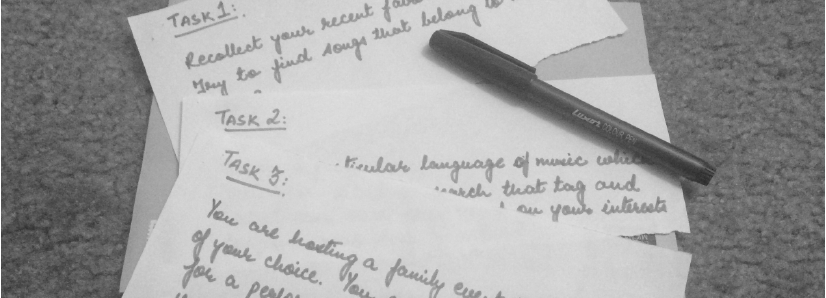 TASK 1:
Recollect your recent
Try to find songs that belong to
TASK 2:
language of music
that tag and
on your interests
TASK 3:
You are hosting a family
of your choice. You
for a
Luxor